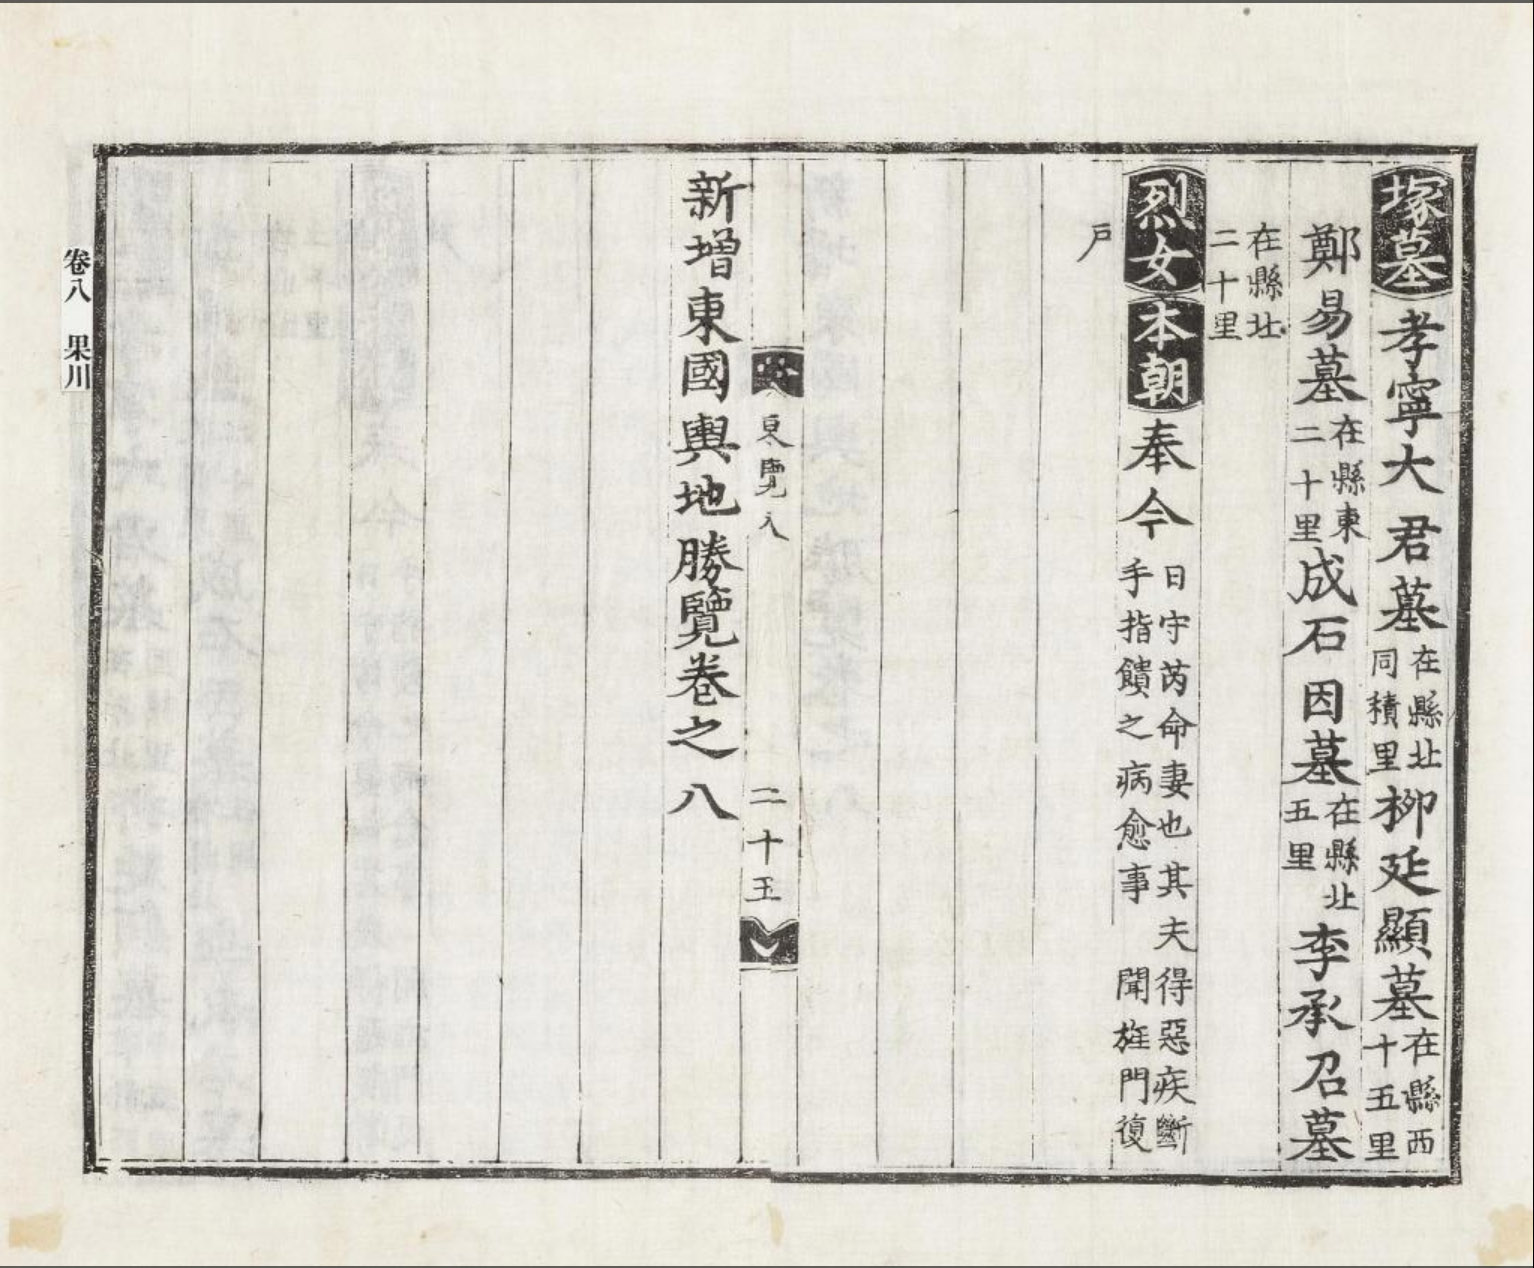 塚墓 孝寧大君墓 在縣北同積里 柳延顯墓 在縣西十五里
鄭易墓 在縣東二十里 成石因墓 在縣北五里 李承召墓
在縣北二十里
烈女 本朝 奉今 日守芮命妻也其夫得惡疾斷手指饋之病愈事聞旌門復
戶
東覽八
二十五
新增東國輿地勝覽卷之八
卷八 果川